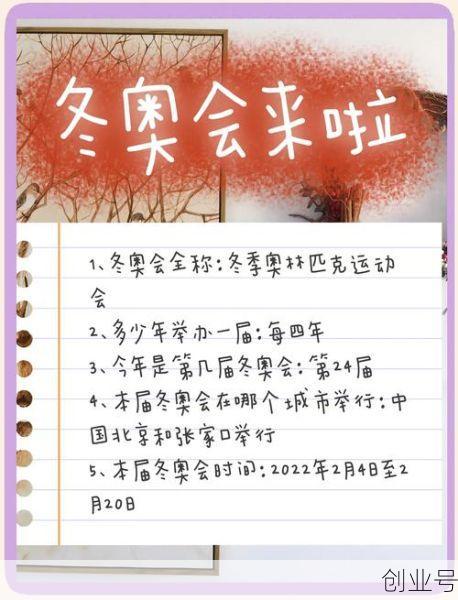 冬奥会来啦
1、冬奥会全称:冬季奥林匹克运动
会
2、多少年举办一届:每四年
3、今年是第几届冬奥会:第24届
4、本届冬奥会在哪个城市举行:中
国北京和张家口举行
5、本届冬奥会时间:2022年2月4日至2
月20日
创业号